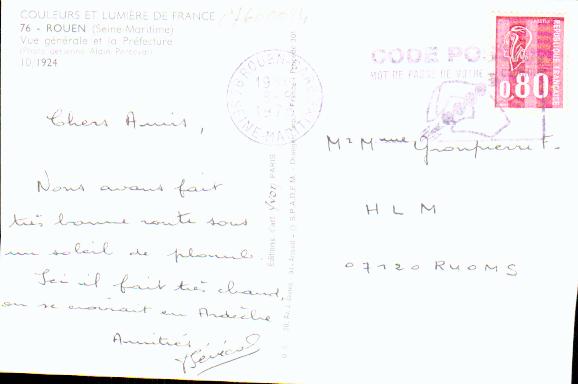 COULEURS ET LUMIÈRE DE FRANCE
76 - ROUEN (Seine-Maritime)
Vue générale et la Préfecture
(Photo aérienne Alain Perceval)
10/1924
Chers Amis,
Nous avons fait
très bonne route sous
un soleil de plomb.
Ici il fait très chaud,
on se croirait en Ardèche
Amitiés
ROUEN
19
SEINE-MARITIME
CODE PO
MOT DE PASSE DE VOTRE
0,80
REPUBLIQUE FRANÇAISE
Editions d'art Yvon PARIS
M & Mme Gronpierre
HLM
07120 RUOMS